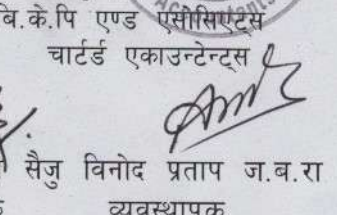 बि.के.पि एण्ड एसोसिएट्स
चार्टर्ड एकाउन्टेन्ट्स
सैजु विनोद प्रताप ज.ब.रा
व्यवस्थापक